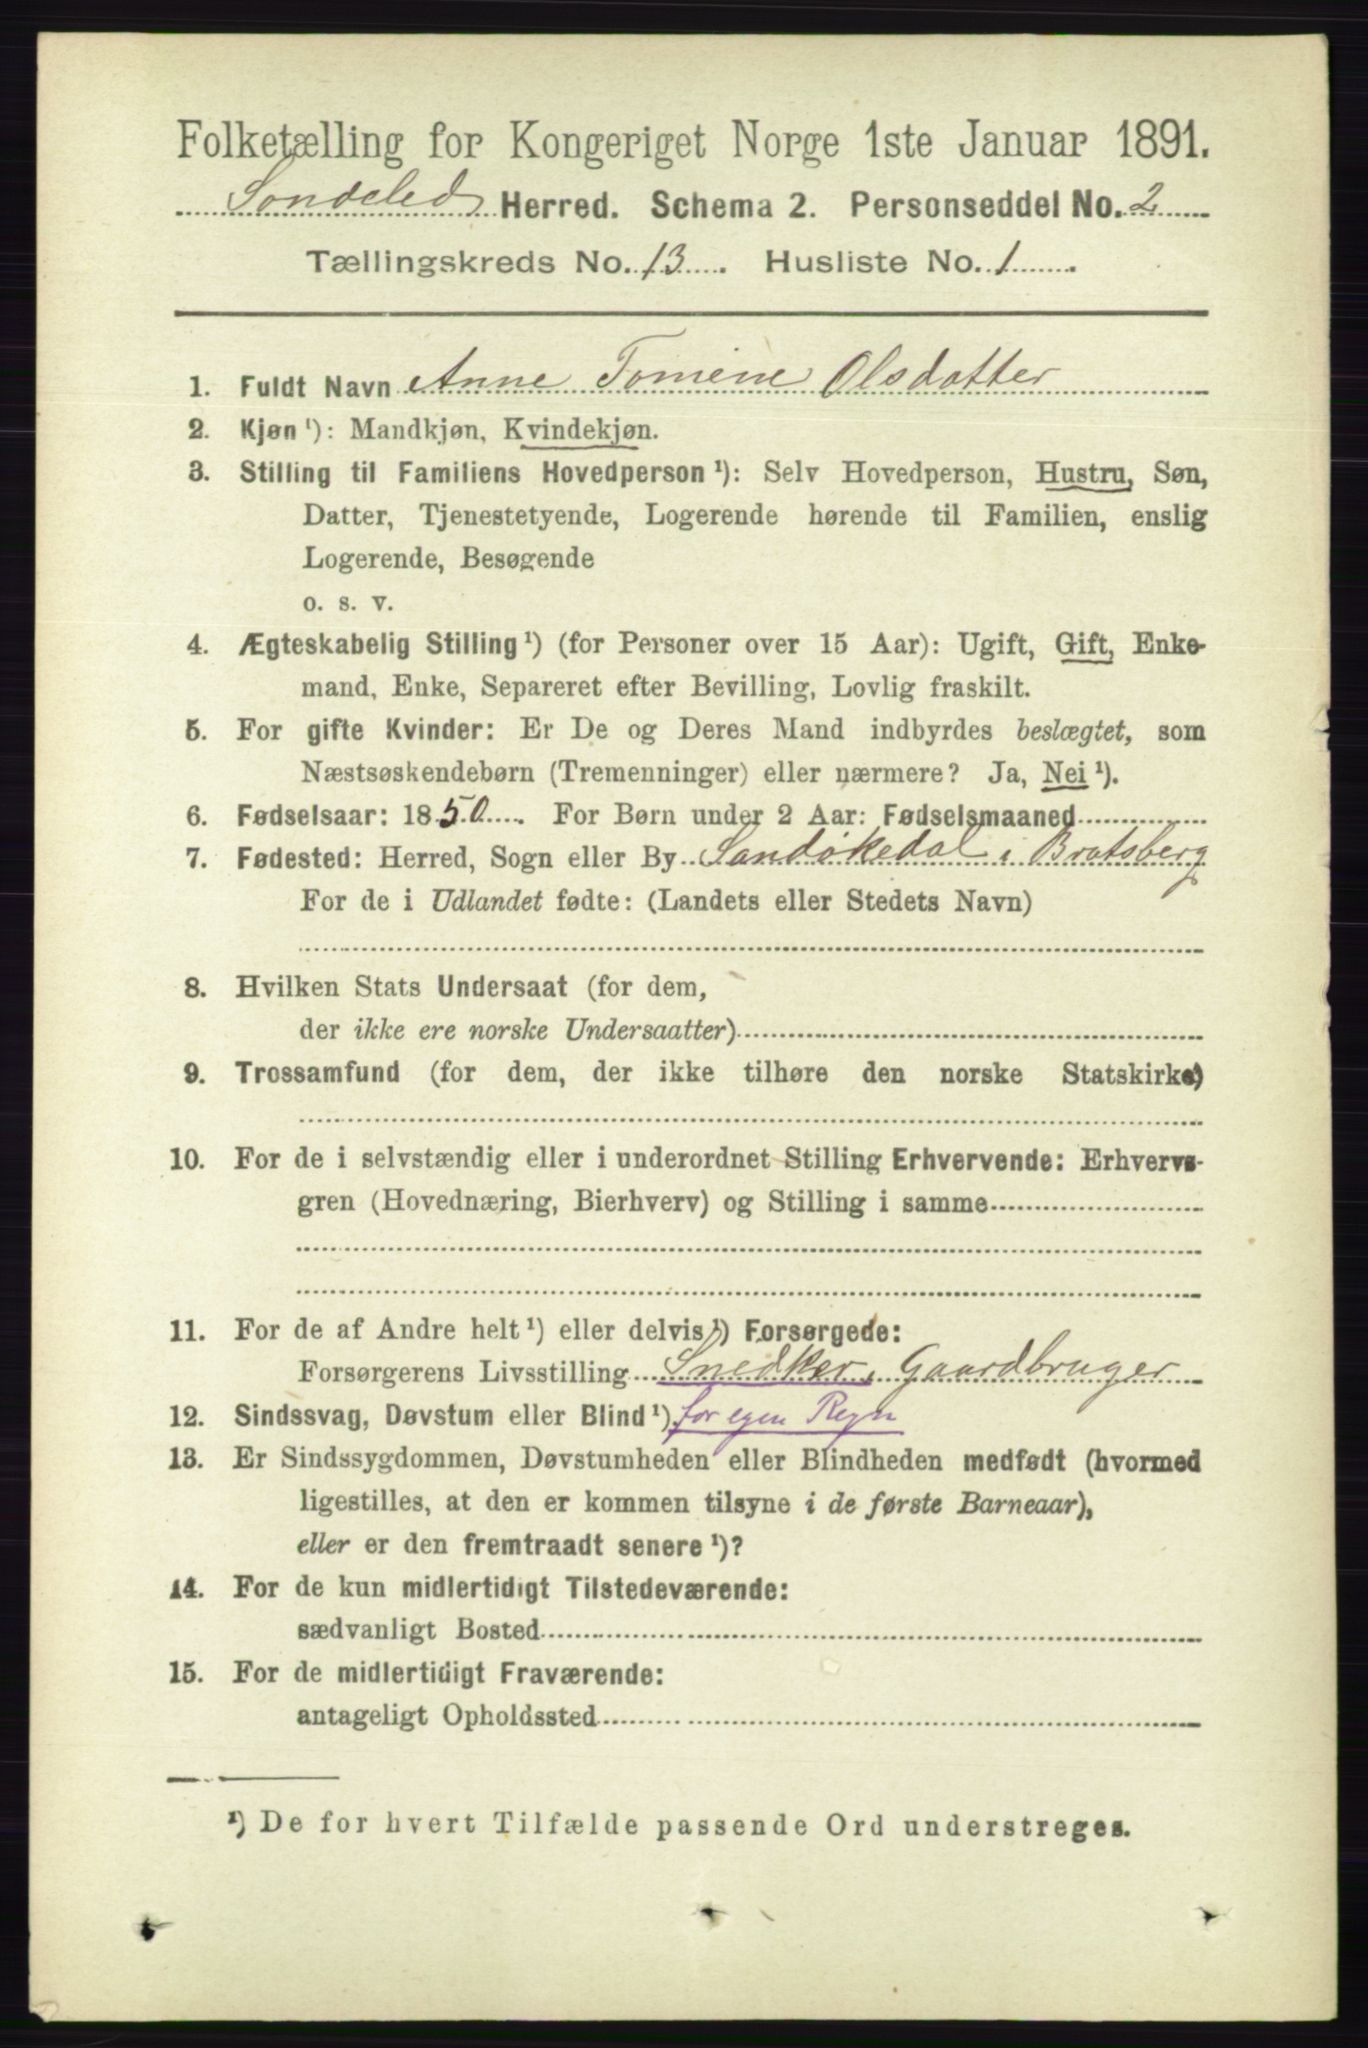 Folketælling for Kongeriget Norge 1ste Januar 1891.
Søndeled Herred. Schema 2. Personseddel No. 2
Tællingskreds No. 13. Husliste No. 1.
1. Fuldt Navn Anne Tomine Olsdatter
2. Kjøn ¹): Mandkjøn, Kvindekjøn.
3. Stilling til Familiens Hovedperson ¹): Selv Hovedperson, Hustru, Søn,
Datter, Tjenestetyende, Logerende hørende til Familien, enslig
Logerende, Besøgende
o. s. v.
4. Ægteskabelig Stilling ¹) (for Personer over 15 Aar): Ugift, Gift, Enke-
mand, Enke, Separeret efter Bevilling, Lovlig fraskilt.
5. For gifte Kvinder: Er De og Deres Mand indbyrdes beslægtet, som
Næstsøskendebørn (Tremenninger) eller nærmere? Ja, Nei ¹).
6. Fødselsaar: 1850. For Børn under 2 Aar: Fødselsmaaned
7. Fødested: Herred, Sogn eller By Sandøkedal i Bratsberg
For de i Udlandet fødte: (Landets eller Stedets Navn)
8. Hvilken Stats Undersaat (for dem,
der ikke ere norske Undersaatter)
9. Trossamfund (for dem, der ikke tilhøre den norske Statskirke)
10. For de i selvstændig eller i underordnet Stilling Erhvervende: Erhvervs-
gren (Hovednæring, Bierhverv) og Stilling i samme
11. For de af Andre helt ¹) eller delvis ¹) Forsørgede:
Forsørgerens Livsstilling Snedker, Gaardbruger
12. Sindssvag, Døvstum eller Blind ¹) for egen Regn
13. Er Sindssygdommen, Døvstumheden eller Blindheden medfødt (hvormed
ligestilles, at den er kommen tilsyne i de første Barneaar),
eller er den fremtraadt senere ¹)?
14. For de kun midlertidigt Tilstedeværende:
sædvanligt Bosted
15. For de midlertidigt Fraværende:
antageligt Opholdssted
¹) De for hvert Tilfælde passende Ord understreges.